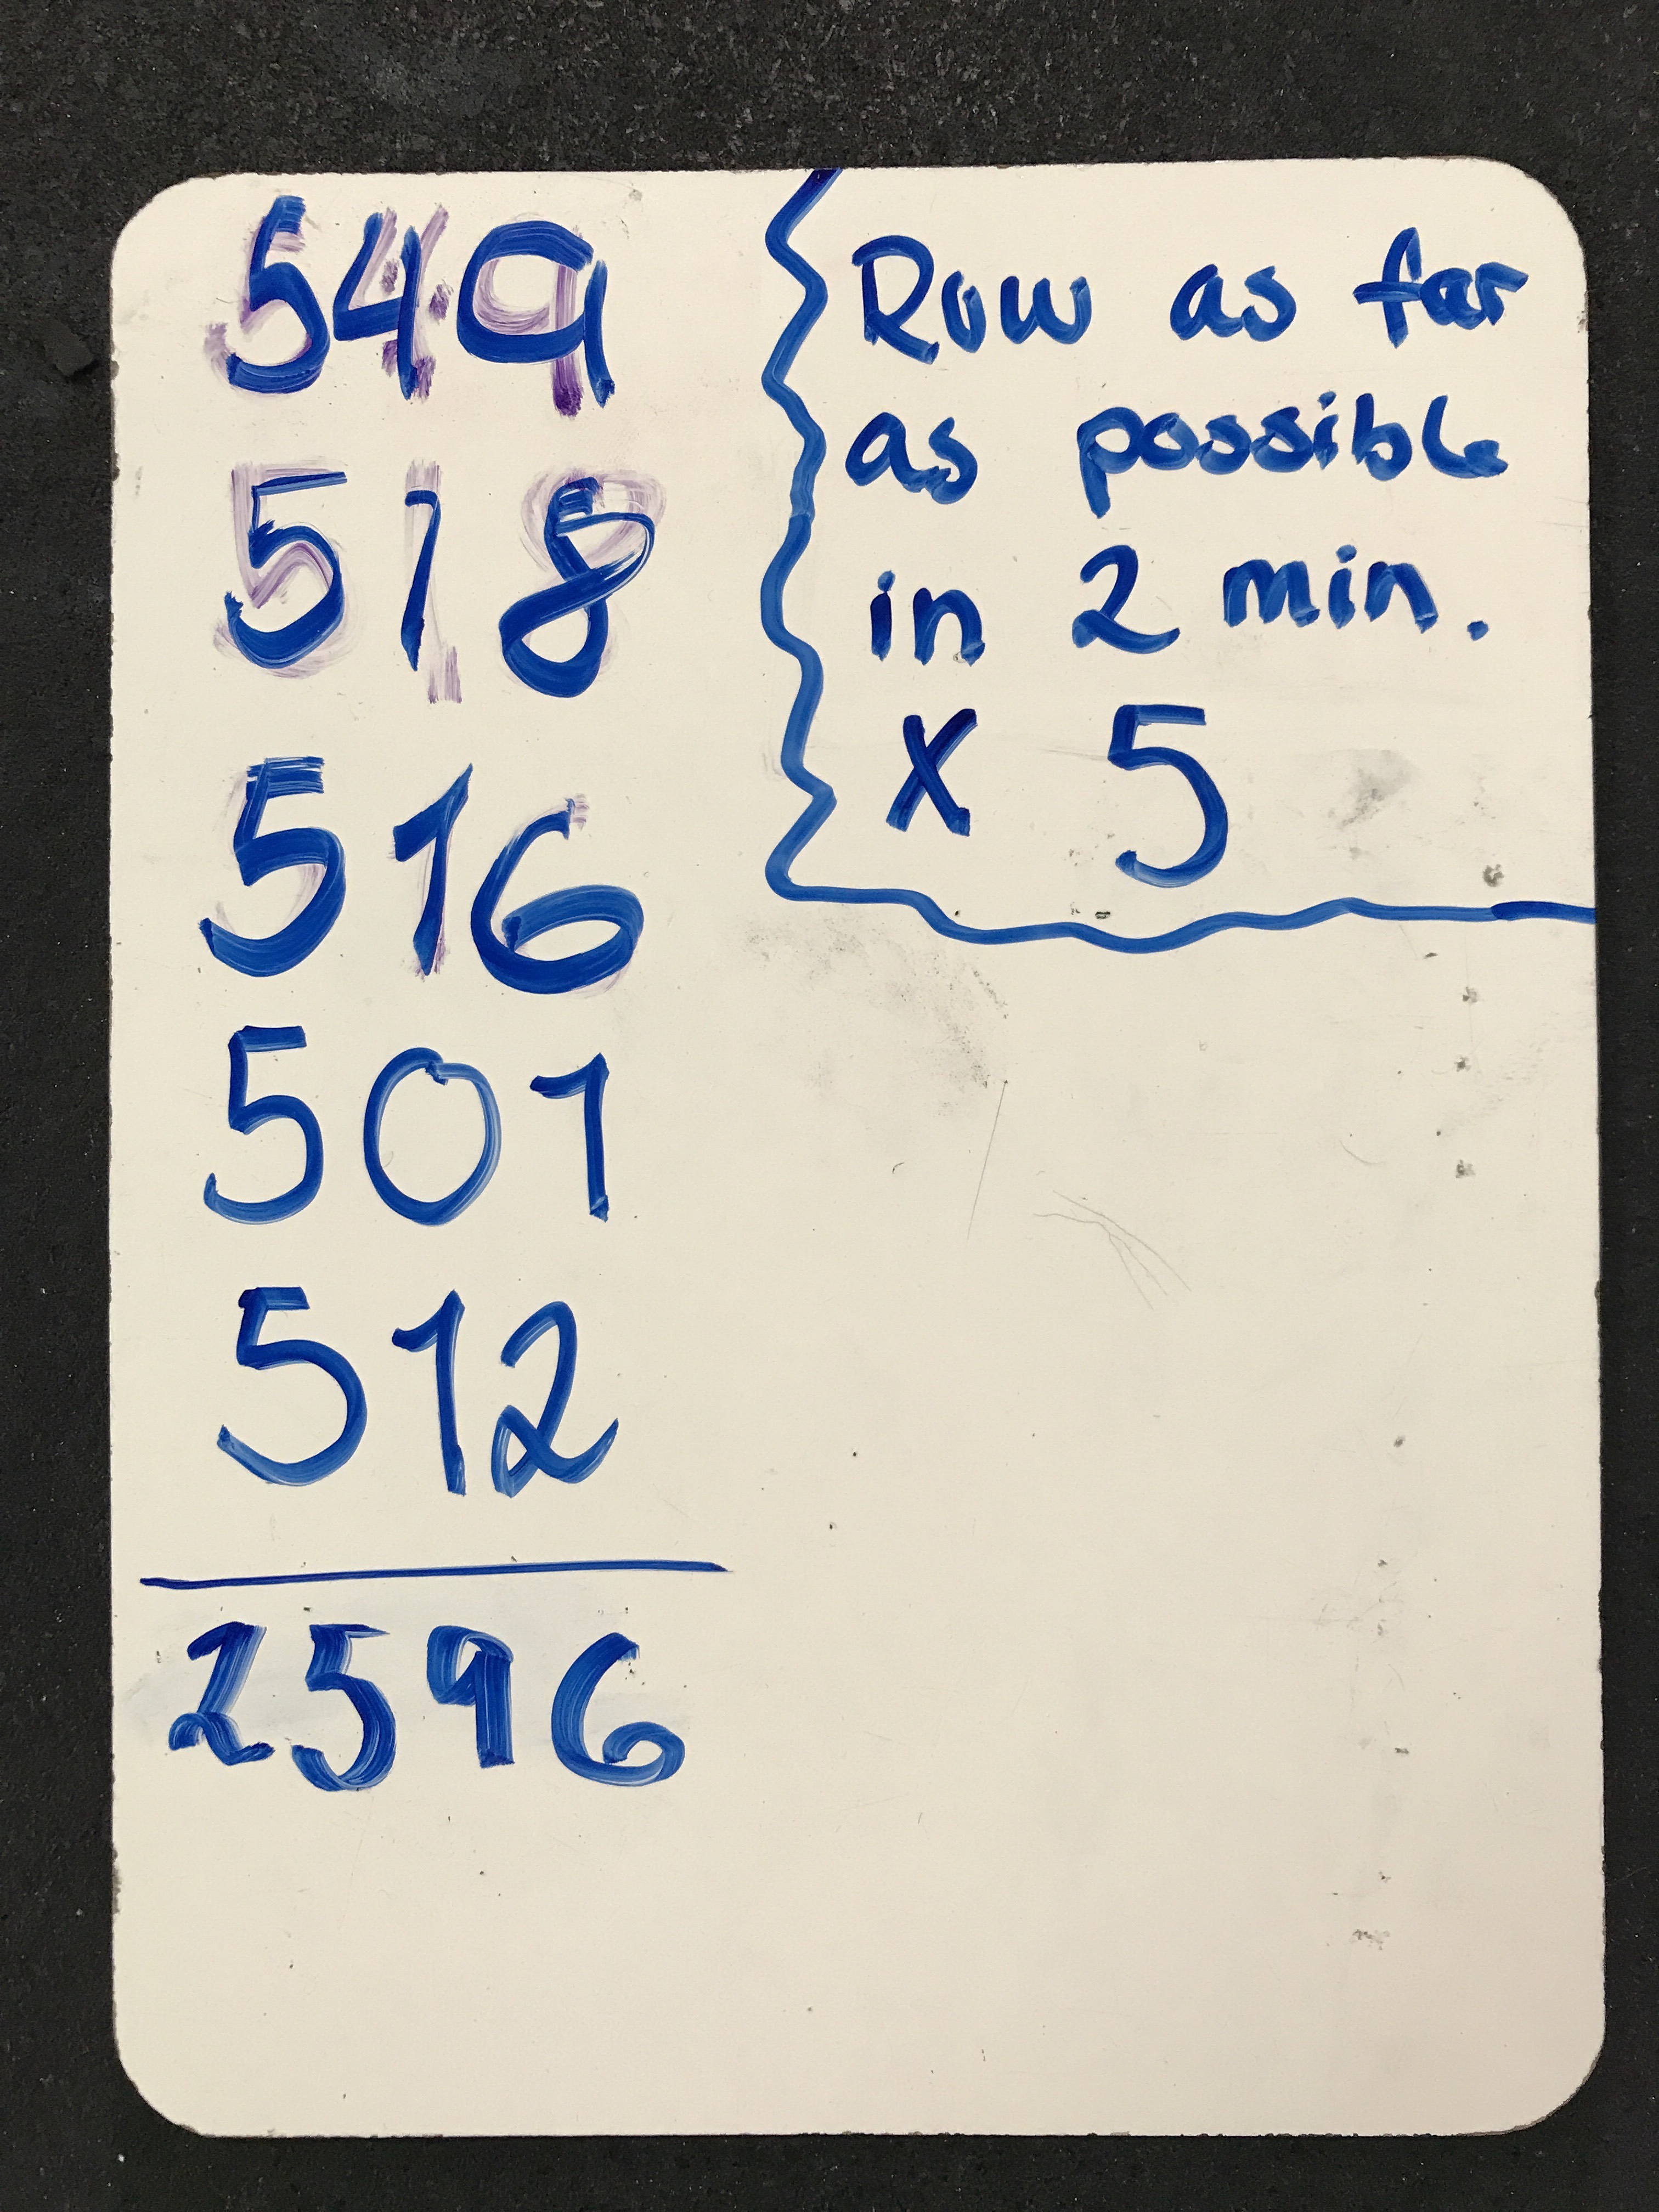 549
518
516
501
512
2596
Row as far
as possible
in 2 min.
X 5